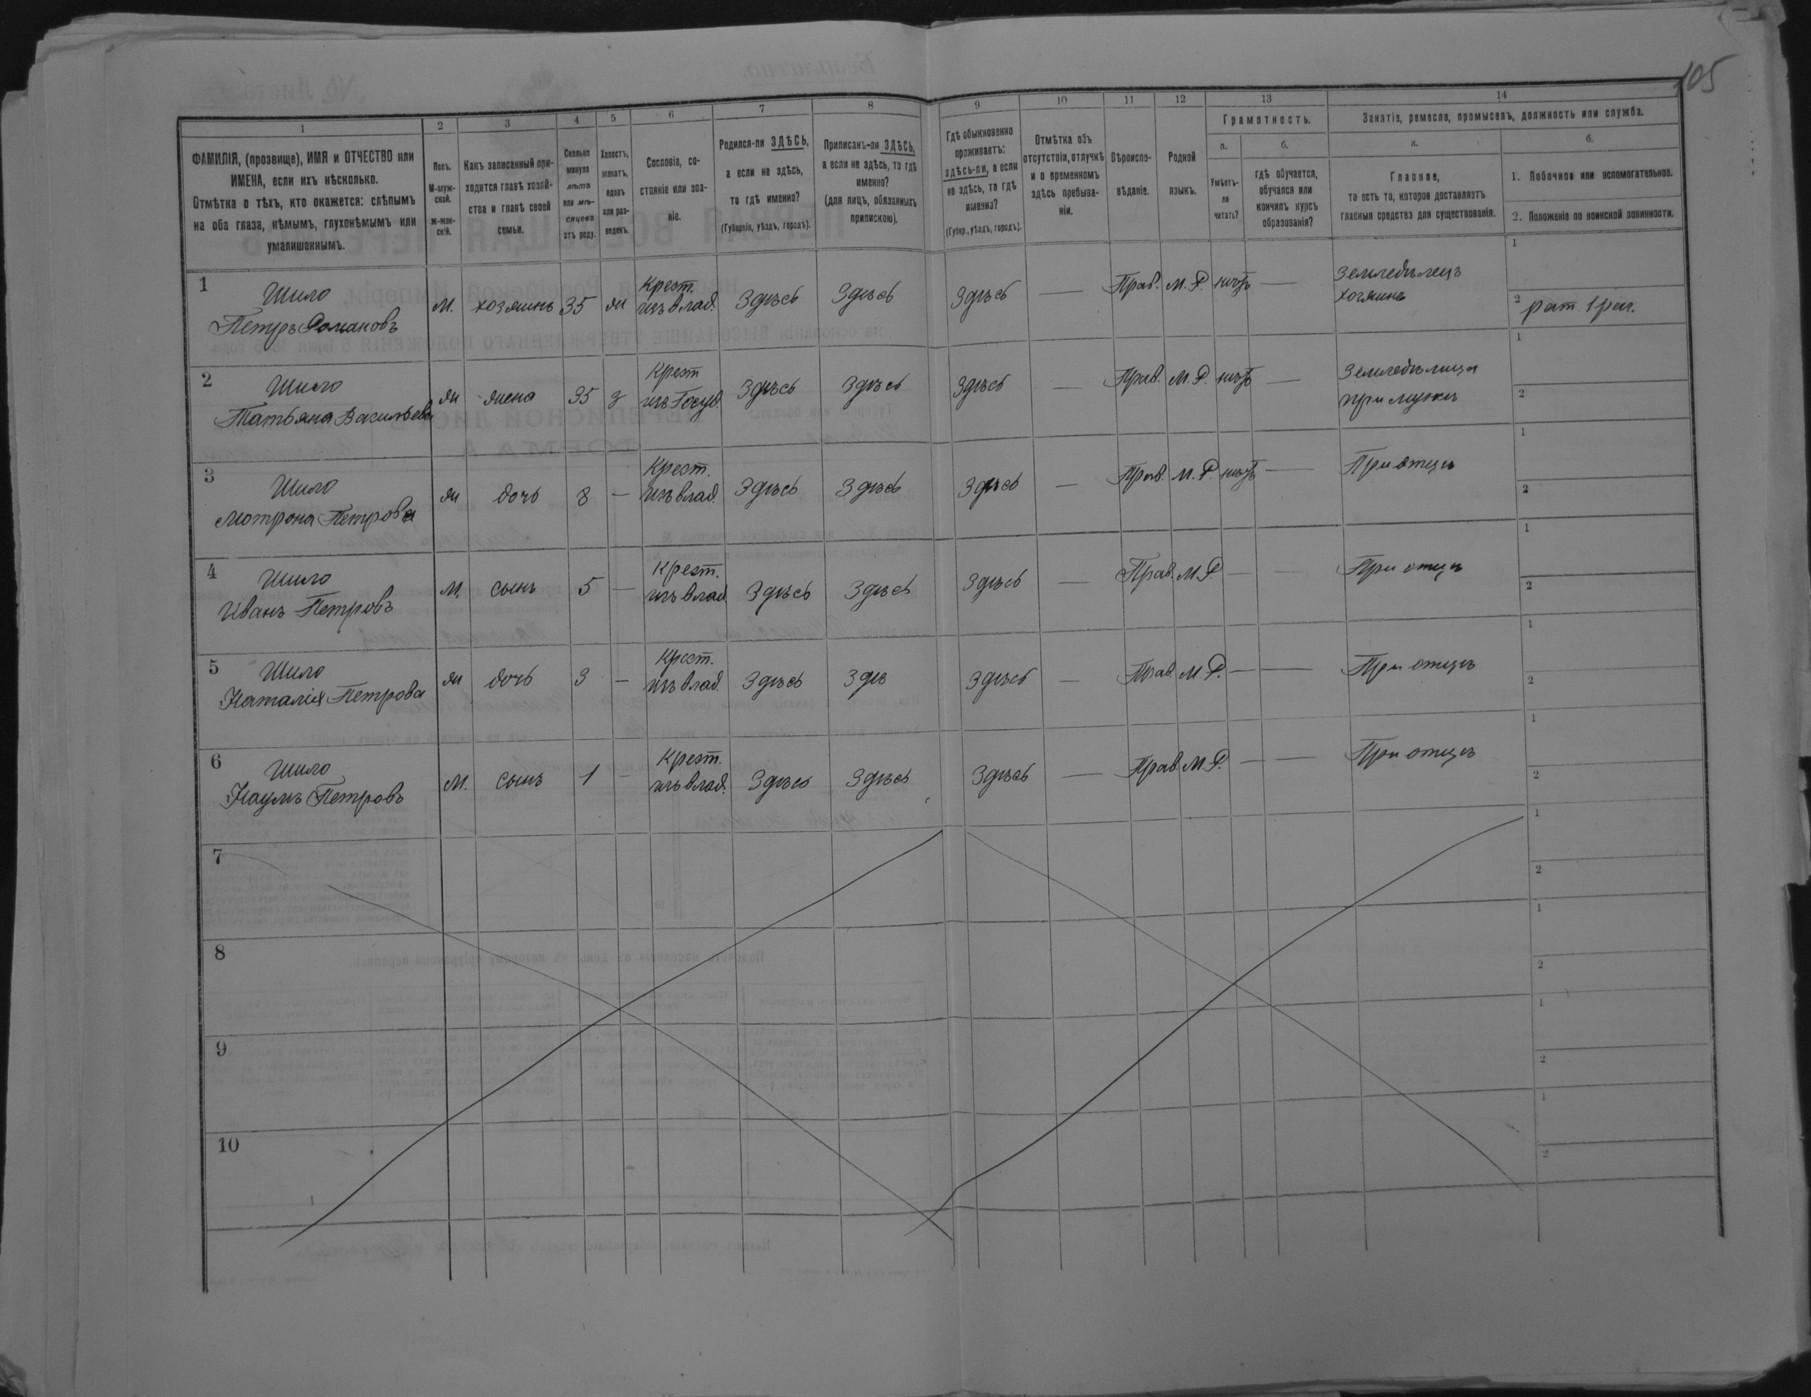 105
1
2
3
4
5
6
7
8
9
10
11
12
13
14
ФАМИЛІЯ, (прозвище), ИМЯ и ОТЧЕСТВО или
ИМЕНА, если ихъ нѣсколько.
Отмѣтка о тѣхъ, кто окажется: слѣпымъ
на оба глаза, нѣмымъ, глухонѣмымъ или
умалишеннымъ.
Полъ.
М-муж-
ской.
Ж-жен-
скій.
Какъ записанный при-
ходится главѣ хозяй-
ства и главѣ своей
семьи.
Сколько
минуло
лѣтъ
или мѣ-
сяцевъ
отъ роду.
Холостъ,
женатъ,
вдовъ
или раз-
веденъ.
Сословіе, со-
стояніе или зва-
ніе.
Родился-ли ЗДѢСЬ,
а если не здѣсь,
то гдѣ именно?
(Губернія, уѣздъ, городъ).
Приписанъ-ли ЗДѢСЬ,
а если не здѣсь, то гдѣ
именно?
(для лицъ, обязанныхъ
припискою).
Гдѣ обыкновенно
проживаетъ:
здѣсь-ли, а если
не здѣсь, то гдѣ
именно?
(Губер., уѣздъ, городъ).
Отмѣтка объ
отсутствіи, отлучкѣ
и о временномъ
здѣсь пребыва-
ніи.
Вѣроиспо-
вѣданіе.
Родной
языкъ.
Грамотность.
а.
б.
Умѣетъ-
ли
читать?
гдѣ обучается,
обучался или
кончилъ курсъ
образованія?
Занятіе, ремесло, промыселъ, должность или служба.
а.
б.
Главное,
то есть то, которое доставляетъ
главныя средства для существованія.
1. Побочное или вспомогательное.
2. Положеніе по воинской повинности.
1 Шило Крест. земледѣлецъ 1
Петръ Романовъ М. хозяинъ 35 ж изъ влад. Здѣсь Здѣсь Здѣсь — Прав. М. Р. нѣтъ — хозяинъ 2 рат. 1 раз.
2 Шило Крест земледѣлица 1
Татьяна Васильева ж жена 35 з изъ Госуд. Здѣсь Здѣсь Здѣсь — Прав. М. Р. нѣтъ — при мужѣ 2
3 Шило Крест. 1
Мотрона Петрова ж дочь 8 — изъ влад. Здѣсь Здѣсь Здѣсь — Прав. М. Р. нѣтъ — При отцѣ 2
4 Шило Крест. 1
Иванъ Петровъ М. сынъ 5 — изъ влад Здѣсь Здѣсь Здѣсь — Прав. М. Р — — При отцѣ 2
5 Шило Крест. 1
Наталія Петрова ж дочь 3 — изъ влад. Здѣсь Здѣ Здѣсь — Прав. М. Р. — — При отцѣ 2
6 Шило Крест. 1
Наумъ Петровъ М. сынъ 1 — изъ влад. Здѣсь Здѣсь Здѣсь — Прав. М. Р. — — При отцѣ 2
7 1
2
8 1
2
9 1
2
10 1
2